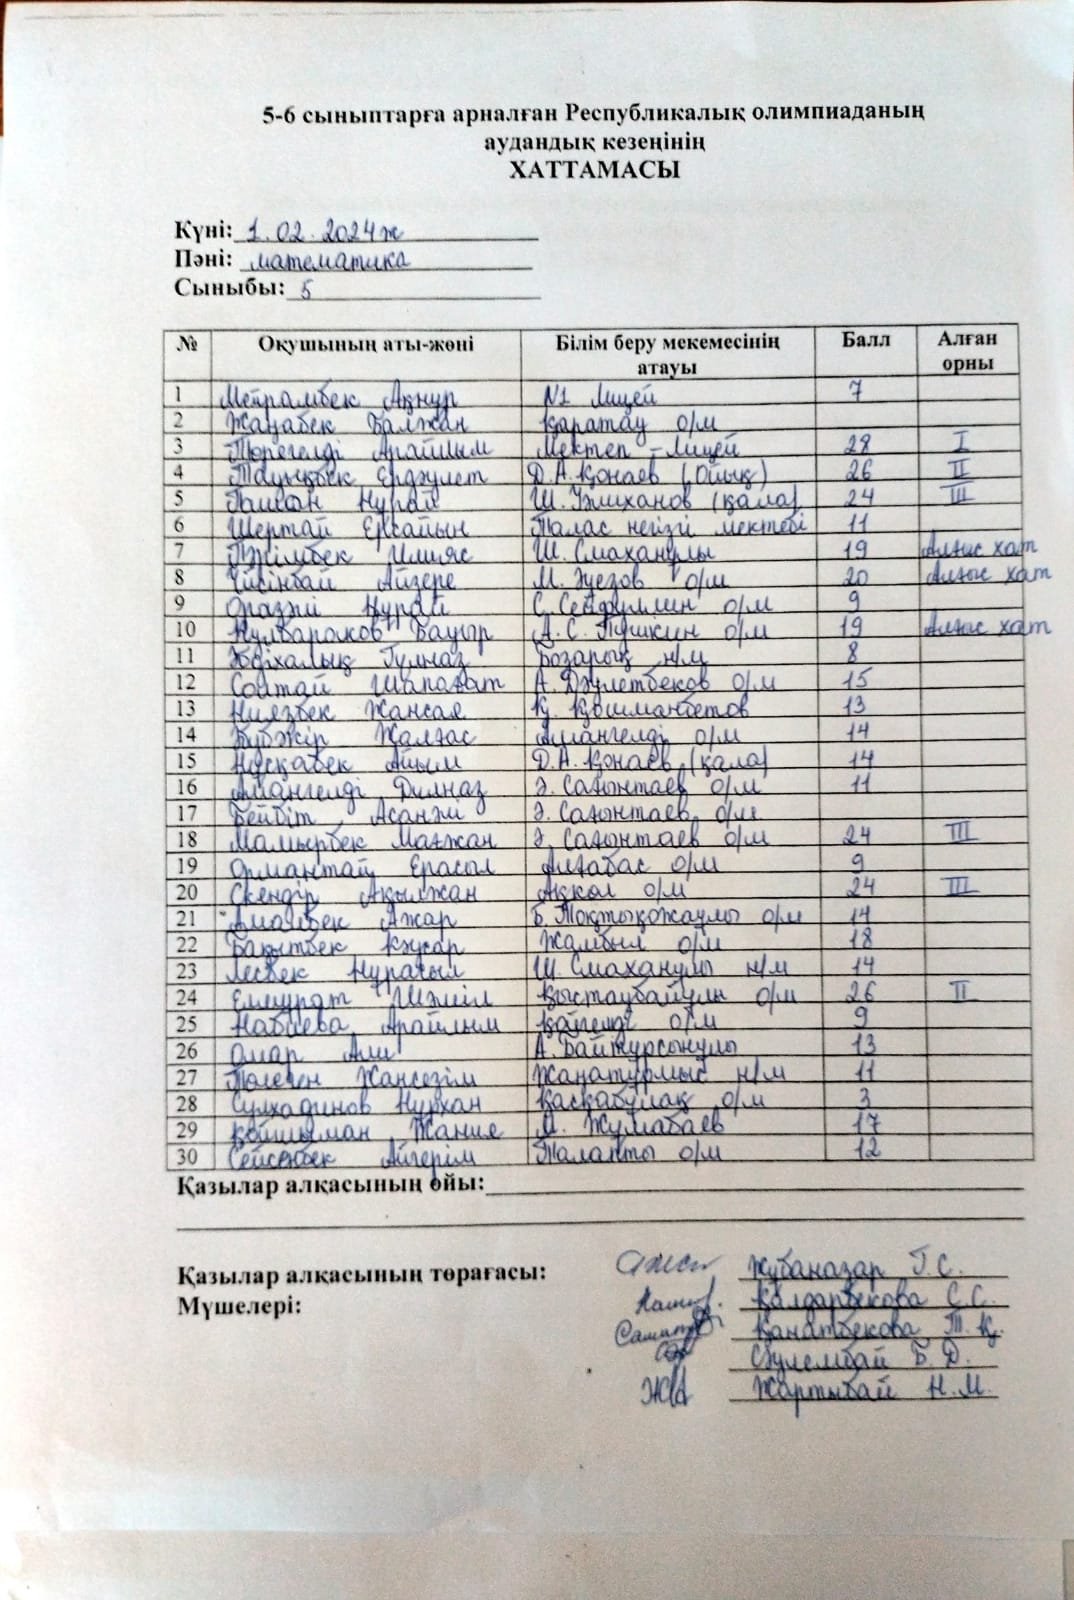 5-6 сыныптарға арналған Республикалық олимпиаданың
аудандық кезеңінің
ХАТТАМАСЫ
Күні: 1.02.2024ж
Пәні: математика
Сыныбы: 5
№ Оқушының аты-жөні Білім беру мекемесінің атауы Балл Алған орны
1 Мейрамбек Ақнұр №1 Лицей 7
2 Жаңабек Балжан Қаратау о/м
3 Төрегелді Арайлым Мектеп-Лицей 28 I
4 Тауықбек Ердәулет Д.А.Қонаев (Ойық) 26 II
5 Ғалсан Нұрай Ш. Уәлиханов (қала) 24 III
6 Шертай Ерсайын Талас негізгі мектебі 11
7 Тәжімбек Ильяс Ш. Смаханұлы 19 Алғыс хат
8 Үйсінбай Айзере М. Әуезов о/м 20 Алғыс хат
9 Оразәлі Нұрай С. Сейфуллин о/м 9
10 Құлбарақов Бауыр А.С. Пушкин о/м 19 Алғыс хат
11 Әбдіхалық Гүлназ Бозарық н/м 8
12 Солтай Шапағат А. Дәулетбеков о/м 15
13 Ниязбек Жансая Қ. Қошмамбетов 13
14 Жалғас Амангелді о/м 14
15 Нұсқабек Айым Д.А. Қонаев (қала) 14
16 Амангелді Дилназ Ә. Сағынтаев о/м 11
17 Бейбіт Асанәлі Ә. Сағынтаев о/м
18 Мамырбек Мағжан Ә. Сағынтаев о/м 24 III
19 Ормантай Ерасыл Алғабас о/м 9
20 Скендір Ақылжан Ақкөл о/м 24 III
21 Ажар Б. Тоқтықожаұлы о/м 14
22 Бақытбек Кәусар Жамбыл о/м 18
23 Лесбек Нұрасыл Ш. Смаханұлы н/м 14
24 Елмұрат Шәміл Қыстаубайұлы о/м 26 II
25 Набиева Арайлым Көшелі о/м 9
26 Омар Али А. Байтұрсынұлы 13
27 Төлеген Жансезім Жаңатұрмыс н/м 11
28 Сулхадинов Нұрхан Қасқабұлақ о/м 3
29 Қойшыман Жания М. Жұмабаев 17
30 Сейсенбек Айгерім Талапты о/м 12
Қазылар алқасының ойы:
Қазылар алқасының төрағасы: Жұбаназар Г.С.
Мүшелері: Қалдарбекова С.С.
Қанатбекова Т.Қ.
Сәулембай Б.Д.
Жартыбай Н.М.